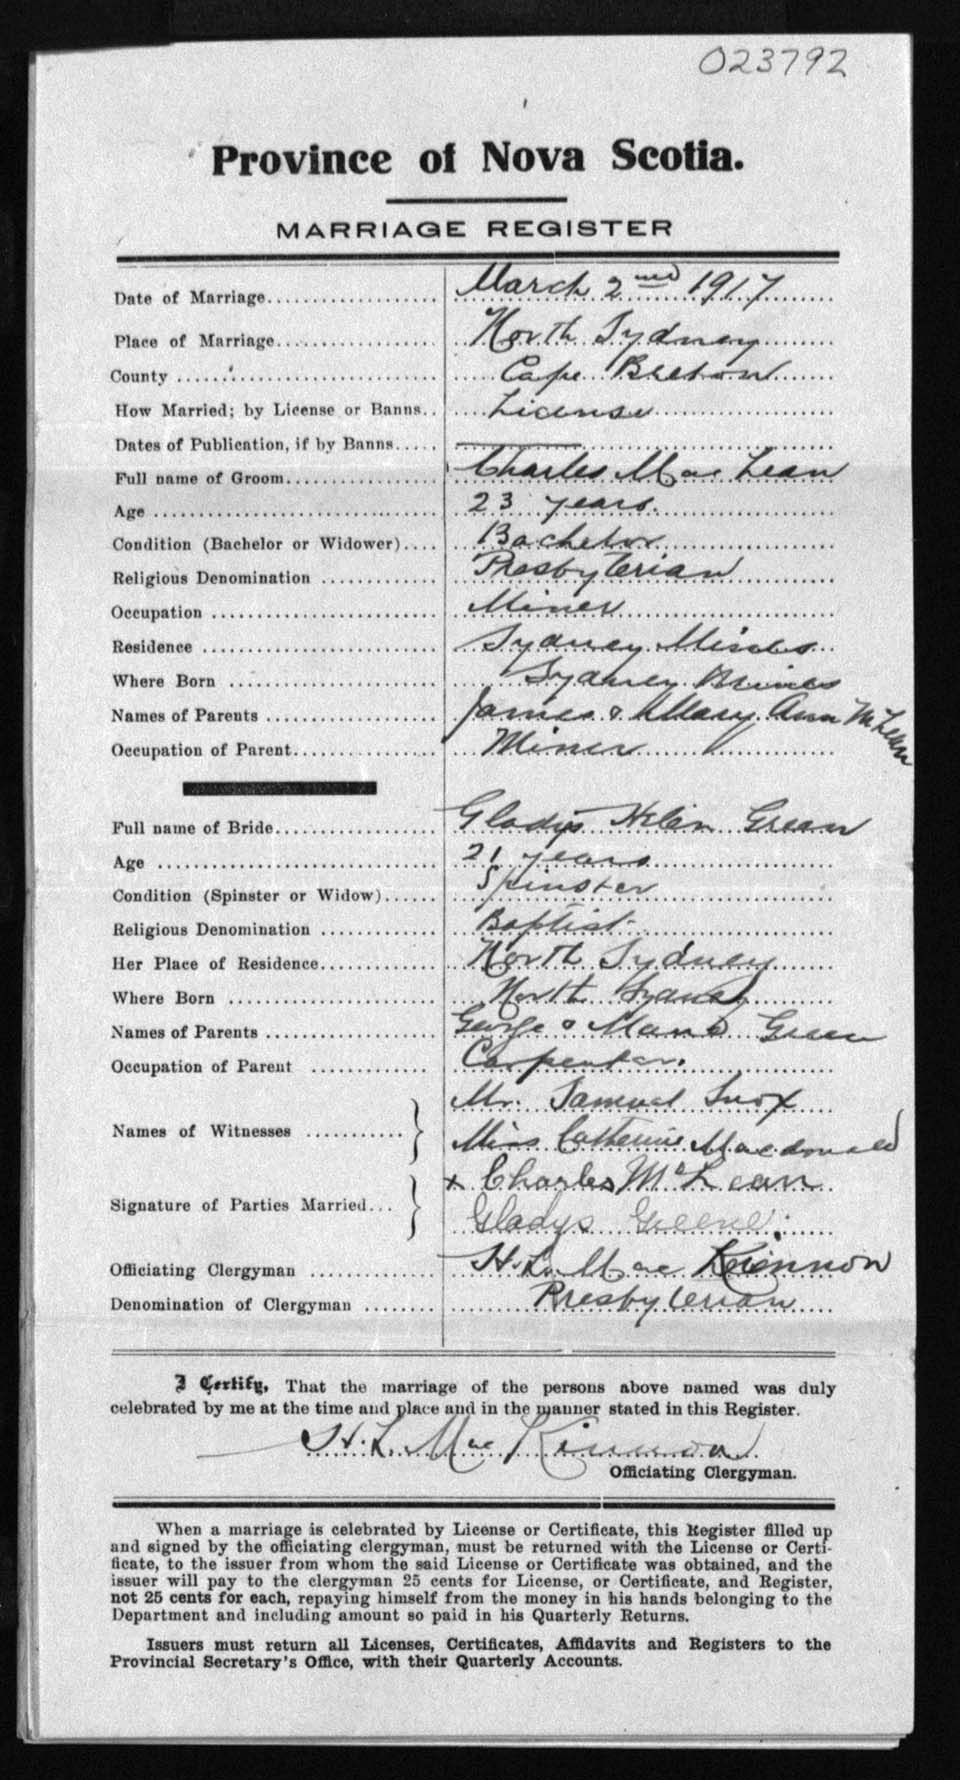 023792
Province of Nova Scotia.
MARRIAGE REGISTER
Date of Marriage March 2nd 1917
Place of Marriage North Sydney
County Cape Breton
How Married; by License or Banns License
Dates of Publication, if by Banns
Full name of Groom Charles Mac Lean
Age 23 years.
Condition (Bachelor or Widower) Bachelor
Religious Denomination Presbyterian
Occupation Miner
Residence Sydney Mines
Where Born Sydney Mines
Names of Parents James & Mary Ann McLean
Occupation of Parent Miner
Full name of Bride Gladys Green
Age 21 years
Condition (Spinster or Widow) Spinster
Religious Denomination Baptist
Her Place of Residence North Sydney
Where Born North Sydney
Names of Parents George & Green
Occupation of Parent Carpenter.
Mr. Samuel
Names of Witnesses
Miss Catherine Macdonald
x Charles McLean
Signature of Parties Married
Gladys Greene.
Officiating Clergyman H. L. Mac Kinnon
Denomination of Clergyman Presbyterian
I Certify, That the marriage of the persons above named was duly
celebrated by me at the time and place and in the manner stated in this Register.
H. L. Mac Kinnon
Officiating Clergyman.
When a marriage is celebrated by License or Certificate, this Register filled up
and signed by the officiating clergyman, must be returned with the License or Certi-
ficate, to the issuer from whom the said License or Certificate was obtained, and the
issuer will pay to the clergyman 25 cents for License, or Certificate, and Register,
not 25 cents for each, repaying himself from the money in his hands belonging to the
Department and including amount so paid in his Quarterly Returns.
Issuers must return all Licenses, Certificates, Affidavits and Registers to the
Provincial Secretary's Office, with their Quarterly Accounts.